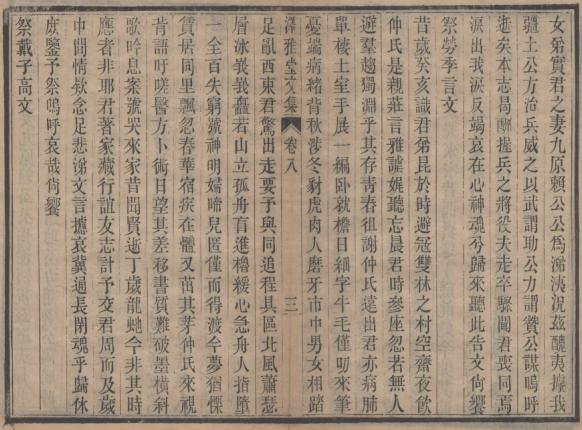 女弟實君之妻九原賴公公爲涕洟況茲醜夷擾我
疆土公方治兵威之以武謂功公力謂贊公謀嗚呼
逝矣本志曷酬握兵之將役夫走卒驟聞君喪同焉
淚出我淚反竭哀在心神魂兮歸來聽此告文尙饗
祭勞季言文
昔歲癸亥識君弟昆於時避寇雙林之村空齋夜飲
仲氏是親莊言雅謔娓聽忘晨君時參座忽若無人
避羣趨獨淵乎其存靑春徂謝仲氏遠出君亦病肺
單棲土室手展一編臥就檐日細字牛毛僅叨來筆
憂端病緒背秋涉冬豺虎肉人磨牙市中男女相踏
足亂西東君驚出走要予與同追程具區北風蕭瑟
層冰峩峩矗若山立孤舟首進櫓緩心急舟人指墮
一全百失窮號神明嬬啼兒匿僅而得渡今夢猶慄
賃居同里飄忽春華宿疾在體又茁其芽仲氏來視
昔語吁嗟醫方卜術日望其差移書質難破墨橫斜
歌吟息案號哭來家昔聞賢逝丁歲龍虵今非其時
應者非耶君著家藏行誼友志計予交君周而及歲
中間情欸念足悲涕文言攄哀冀逼長閉魂乎歸休
庶鑒予祭嗚呼哀哉尙饗
祭戴子高文
澤雅堂文集
卷八
三